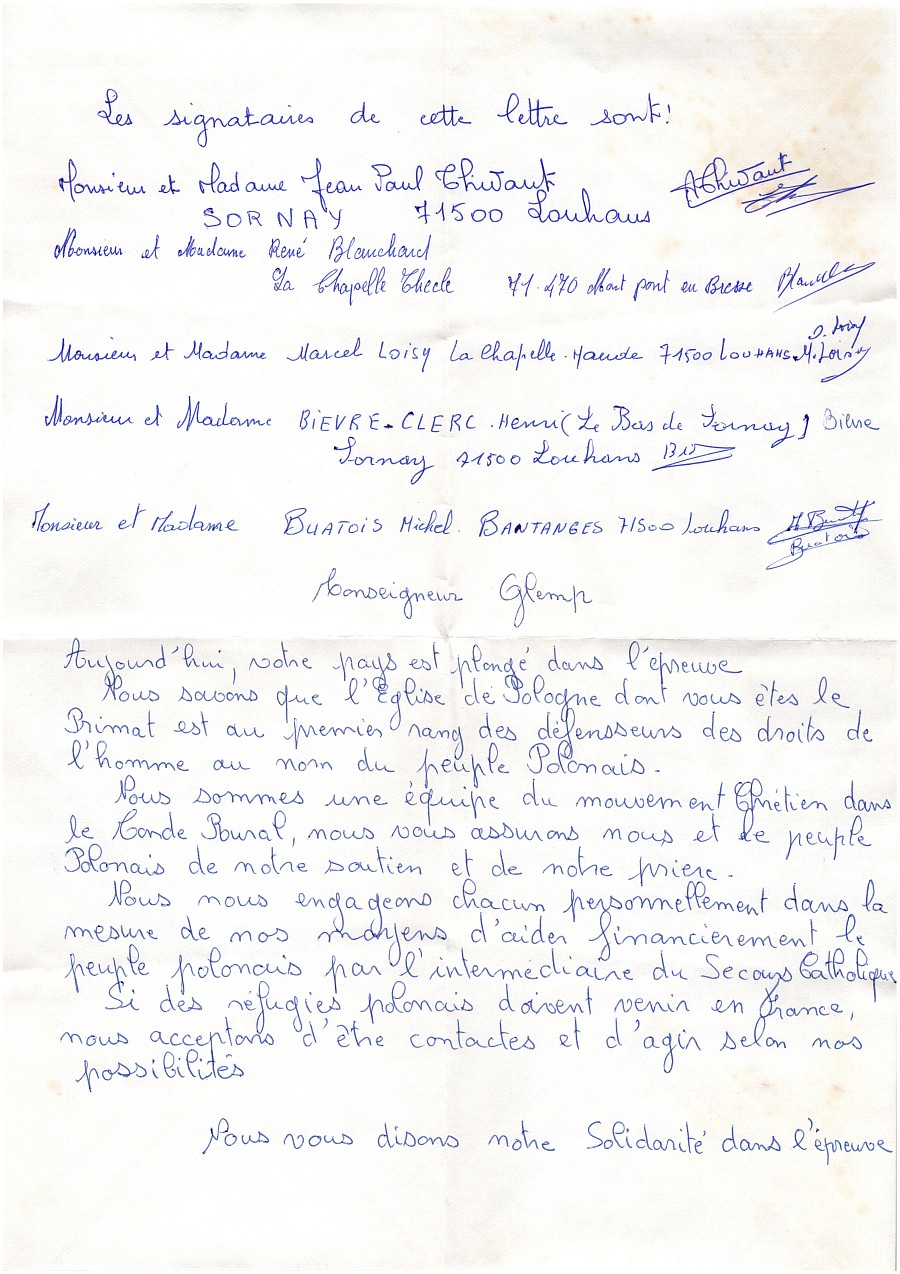 Les signataires de cette lettre sont!
Monsieur et Madame Jean Paul Thivant AThivant
SORNAY 71500 Louhans
Monsieur et Madame René Blanchard
La Chapelle Thecle 71.470 Mont pont en Bresse
Monsieur et Madame Marcel LOISY La Chapelle-Naude 71500 LOUHANS M. Loisy
Monsieur et Madame BIEVRE-CLERC. Henri (Le Bas de Sornay)
Sornay 71500 Louhans
Monsieur et Madame BUATOIS Michel. BANTANGES 71500 Louhans
Buatois
Monseigneur Glemp
Aujourd'hui, votre pays est plongé dans l'épreuve
Nous savons que l'Eglise de Pologne dont vous êtes le
Primat est au premier rang des défensseurs des droits de
l'homme au nom du peuple Polonais.
Nous sommes une équipe du mouvement Chrétien dans
le Monde Rural, nous vous assurons nous et le peuple
Polonais de notre soutien et de notre priere.
Nous nous engageons chacun personnellement dans la
mesure de nos moyens d'aider financièrement le
peuple polonais par l'intermédiaire du Secours Catholique
Si des réfugies polonais doivent venir en France,
nous acceptons d'être contactes et d'agir selon nos
possibilités
Nous vous disons notre Solidarité dans l'épreuve